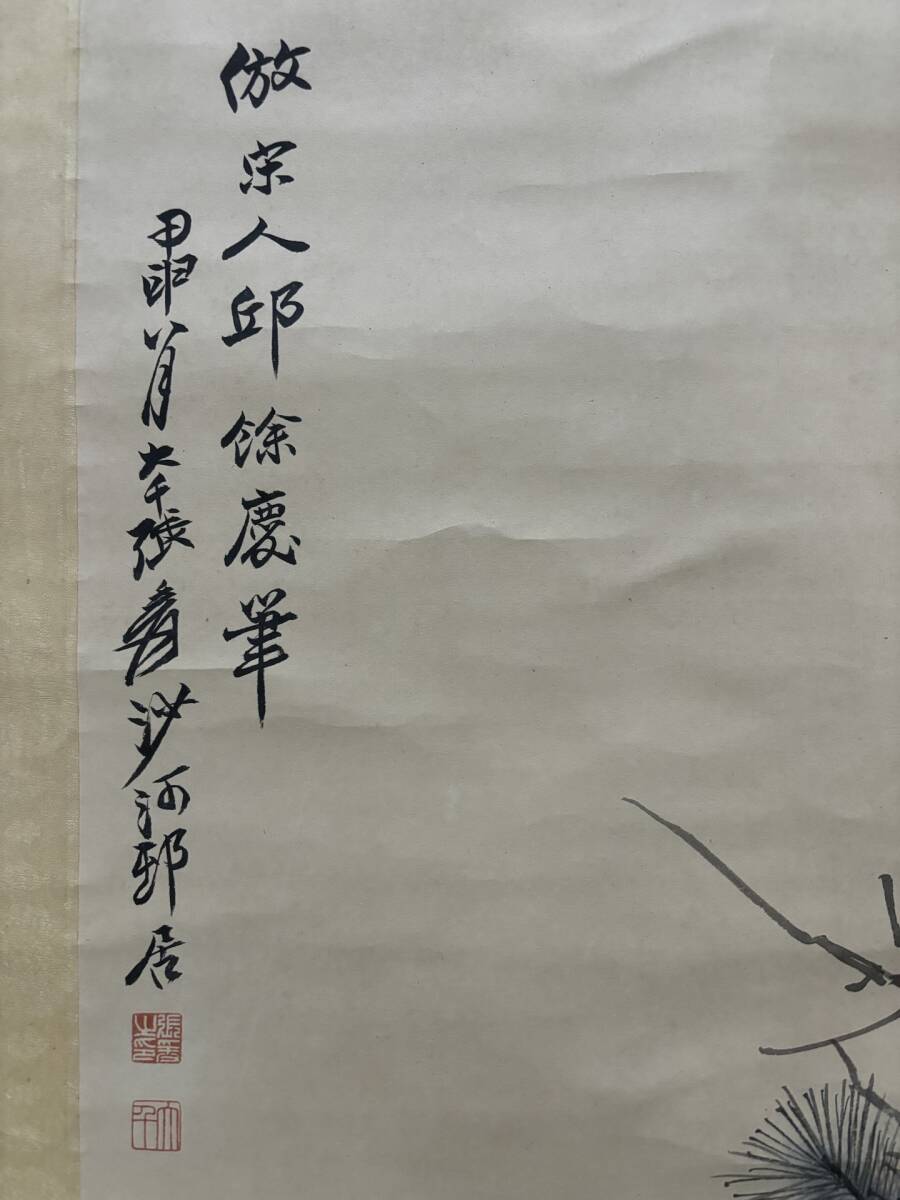 倣宋人邱餘慶筆
甲申八月大千張爰沙河邨居
張爰之印
大千